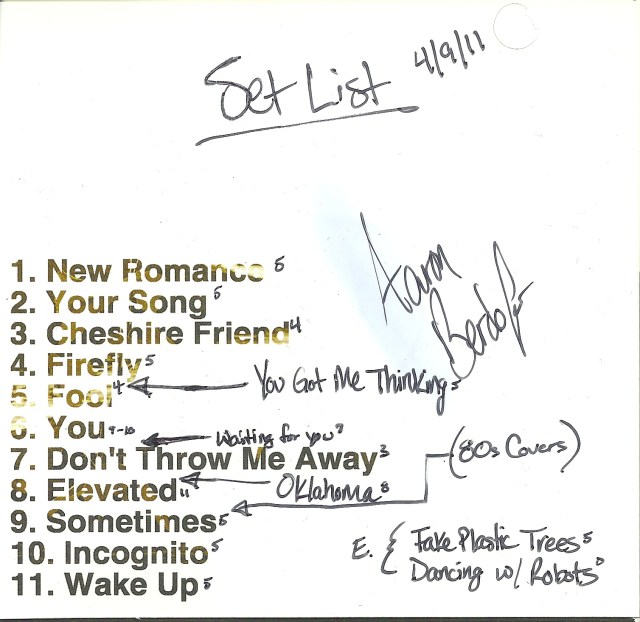 Set List 4/9/11
Aaron
1. New Romance 5
2. Your Song 5
3. Cheshire Friend 4
4. Firefly 5
You Got Me Thinking 5
5. Fool 4
6. You 9-10
Waiting for you
(80s Covers)
7. Don't Throw Me Away 3
Oklahoma 8
8. Elevated 11
9. Sometimes 5
10. Incognito 5
11. Wake Up 5
E. { Fake Plastic Trees 5
Dancing w/ Robots